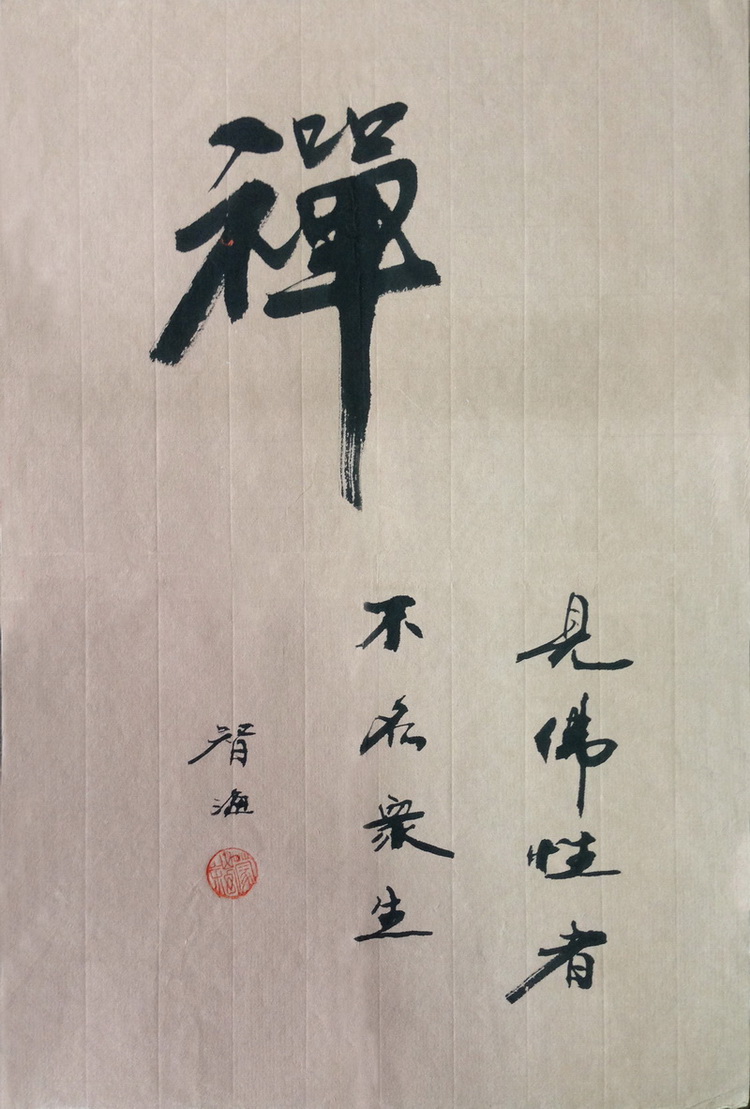 禪
見佛性者
不名衆生
智海